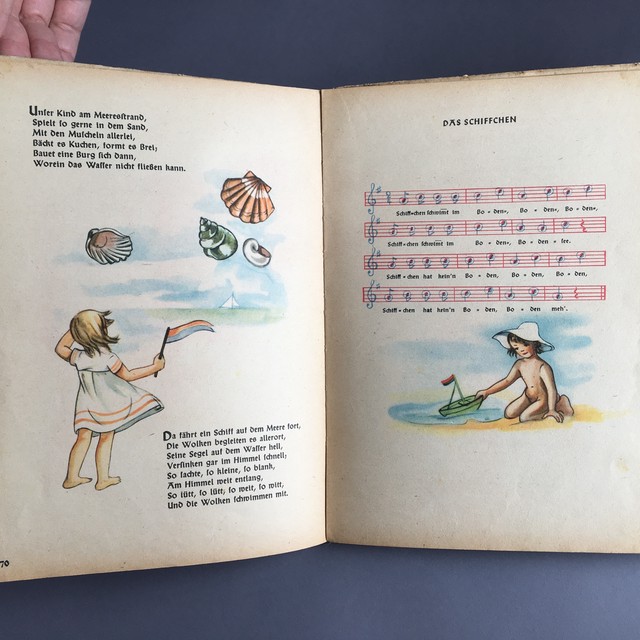 Unſer Kind am Meeresſtrand,
Spielt ſo gerne in dem Sand,
Mit den Muſcheln allerlei,
Bäckt es Kuchen, formt es Brei;
Bauet eine Burg ſich dann,
Worein das Waſſer nicht fließen kann.
Da fährt ein Schiff auf dem Meere fort,
Die Wolken begleiten es allerort,
Seine Segel auf dem Waſſer hell,
Verſinken gar im Himmel ſchnell;
So ſachte, ſo kleine, ſo blank,
Am Himmel weit entlang,
So lütt, ſo lütt; ſo weit, ſo witt,
Und die Wolken ſchwimmen mit.
70
DAS SCHIFFCHEN
Schiff-chen ſchwimt im Bo-den-, Bo-den-, Bo-den-,
Schiff-chen ſchwimt im Bo-den-, Bo-den-ſee.
Schiff-chen hat kein'n Bo-den, Bo-den, Bo-den,
Schiff-chen hat kein'n Bo-den, Bo-den meh'.